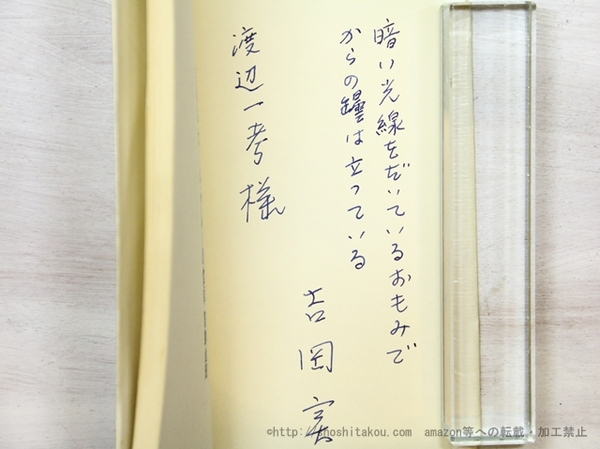 暗い光線をだいているおもみで
からの罎は立っている
吉岡実
渡辺一考様
©http://www.hoshitakou.com amazon等への転載・加工禁止